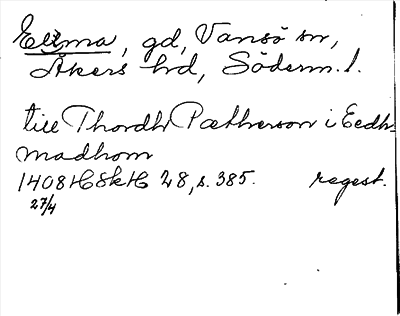 Eesma, gd, Vansö sn,
Åkers hrd, Söderm. l.
till Thordh Pætherson i Eedh-
madhom
1408 HSkH 28, s. 385. regest.
27/4